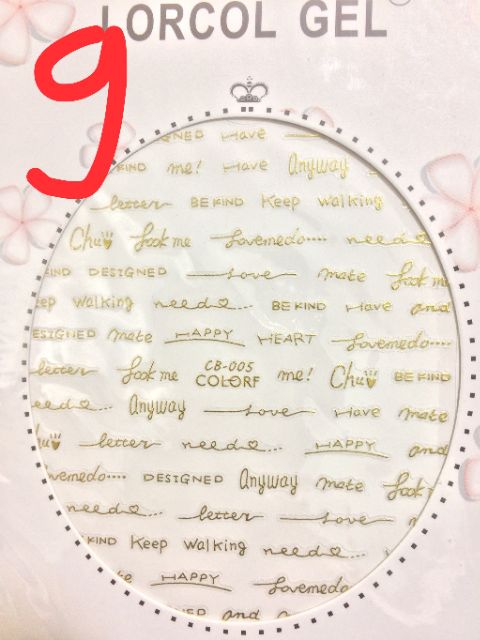 LORCOL GEL
9
GNED Have
KIND me! Have Anyway
letter BE KIND Keep walking
Chu Look me Lovemedo.... need...
IND DESIGNED love mate Look m
eep walking need... BE KIND Have and
ESIGNED mate HAPPY HEART Lovemedo....
letter Look me CB-005 COLORF me! Chu BE KIND
eed... Anyway love Have mate
hu letter need... HAPPY and
ovemedo.... DESIGNED Anyway mate Look
need... letter love
KIND Keep walking need...
te HAPPY Lovemedo
NED and